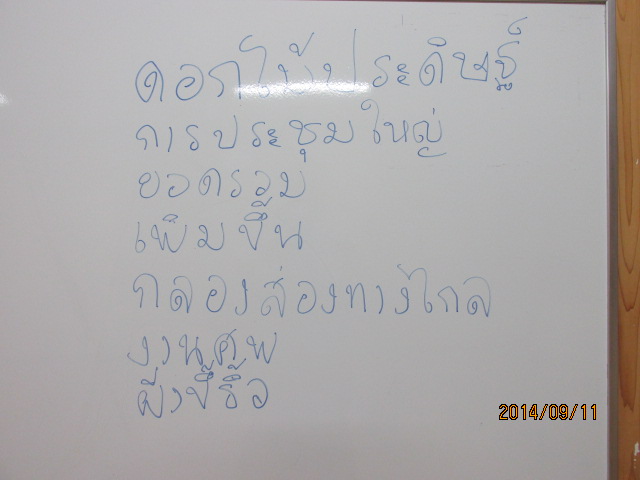 ดอกไม้ประดิษฐ์
การประชุมใหญ่
ยอดรวม
เพิ่มขึ้น
กลองส่องทางไกล
งานศพ
2014/09/11